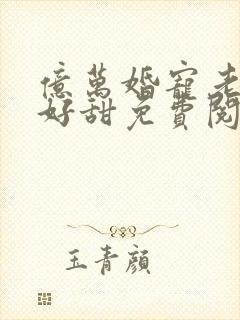 億萬婚寵老
好甜免費閱
玉青顏